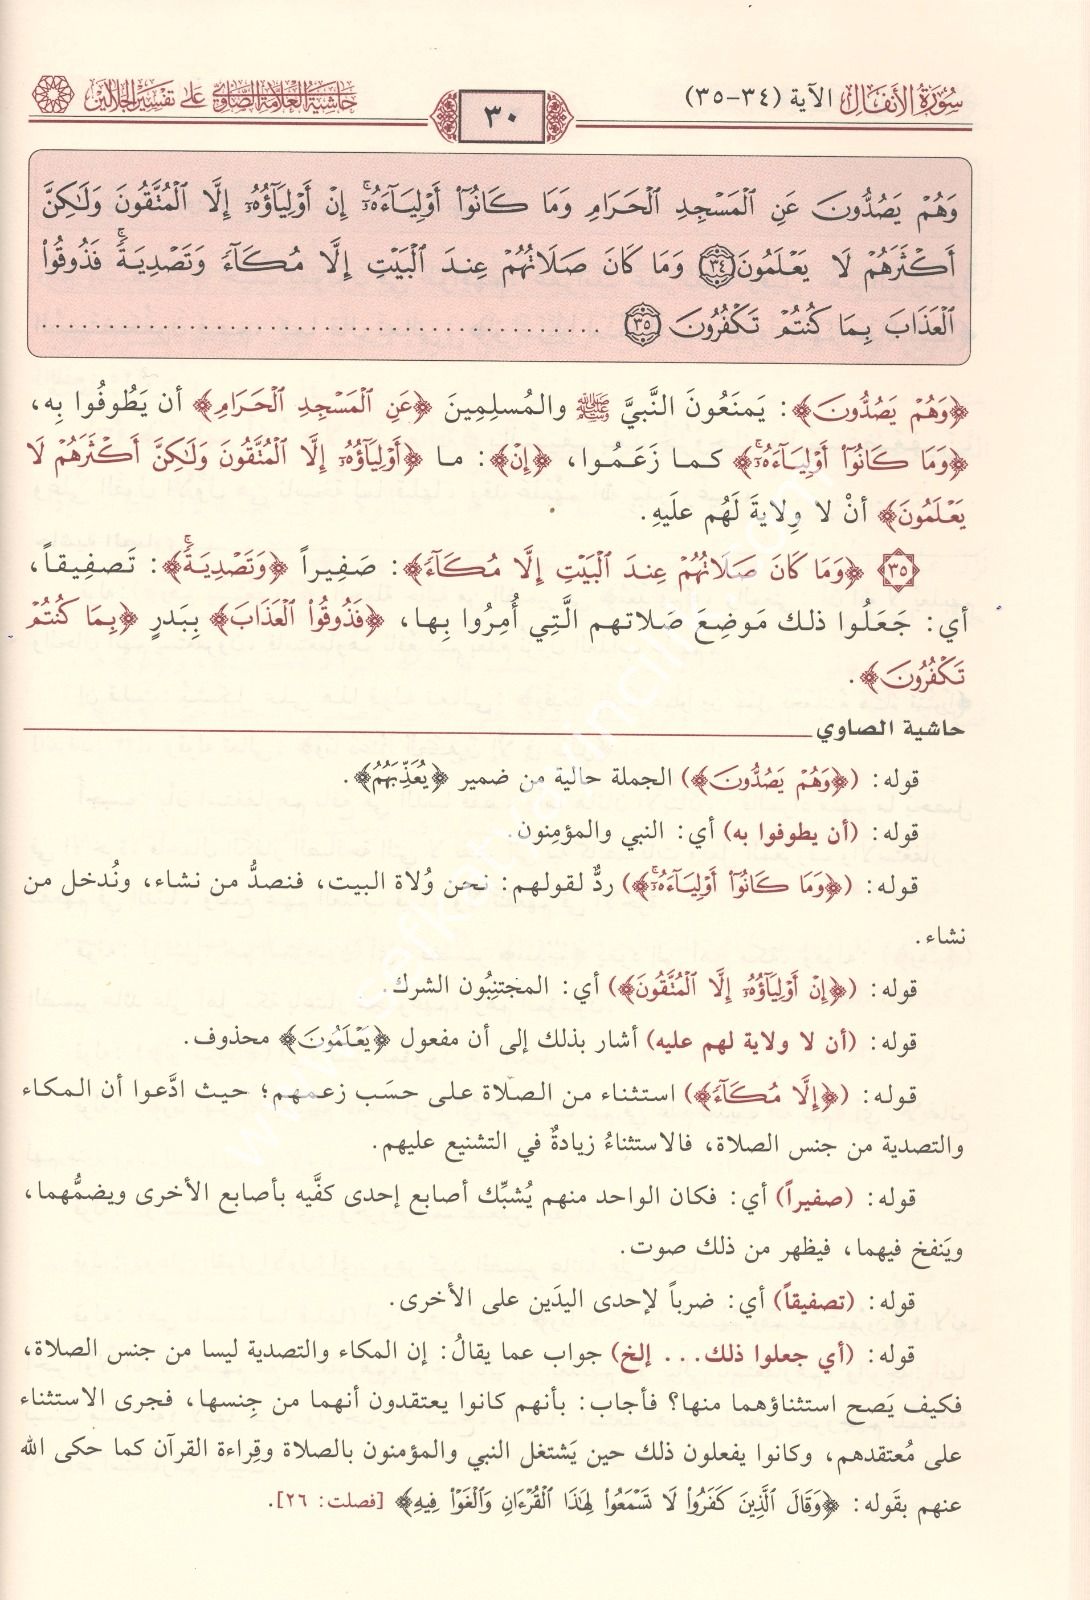 سُورَةُ الأَنفَالِ الآية (٣٤-٣٥)
٣٠
حَاشِيَةُ العَلَّامَةِ الصَّاوِي عَلَى تَفْسِيرِ الجَلَالَيْنِ
وَهُمْ يَصُدُّونَ عَنِ ٱلْمَسْجِدِ ٱلْحَرَامِ وَمَا كَانُوٓا۟ أَوْلِيَآءَهُۥٓ ۚ إِنْ أَوْلِيَآؤُهُۥٓ إِلَّا ٱلْمُتَّقُونَ وَلَٰكِنَّ
أَكْثَرَهُمْ لَا يَعْلَمُونَ ٣٤ وَمَا كَانَ صَلَاتُهُمْ عِندَ ٱلْبَيْتِ إِلَّا مُكَآءً وَتَصْدِيَةً ۚ فَذُوقُوا۟
ٱلْعَذَابَ بِمَا كُنتُمْ تَكْفُرُونَ ٣٥ ........................................
﴿وَهُمْ يَصُدُّونَ﴾: يَمنَعُونَ النَّبيَّ ﷺ والمُسلِمِينَ ﴿عَنِ ٱلْمَسْجِدِ ٱلْحَرَامِ﴾ أن يَطُوفُوا بِه،
﴿وَمَا كَانُوٓا۟ أَوْلِيَآءَهُۥٓ ۚ﴾ كـمـا زَعَـمُـوا، ﴿إِنْ﴾: مـا ﴿أَوْلِيَآؤُهُۥٓ إِلَّا ٱلْمُتَّقُونَ وَلَٰكِنَّ أَكْثَرَهُمْ لَا
يَعْلَمُونَ﴾ أنْ لا وِلايةَ لَهُم علَيهِ.
٣٥ ﴿وَمَا كَانَ صَلَاتُهُمْ عِندَ ٱلْبَيْتِ إِلَّا مُكَآءً﴾: صَفِيراً ﴿وَتَصْدِيَةً ۚ﴾: تَصفِيقاً،
أي: جَعَلُوا ذلك مَوضِعَ صَلاتهم الَّتِي أُمِرُوا بِها، ﴿فَذُوقُوا۟ ٱلْعَذَابَ﴾ بِبَدرٍ ﴿بِمَا كُنتُمْ
تَكْفُرُونَ﴾.
حاشية الصاوي
قوله: (﴿وَهُمْ يَصُدُّونَ﴾) الجملة حالية من ضمير ﴿يُعَذِّبَهُمُ﴾.
قوله: (أن يطوفوا به) أي: النبي والمؤمِنون.
قوله: (﴿وَمَا كَانُوٓا۟ أَوْلِيَآءَهُۥٓ ۚ﴾) ردٌّ لقولهم: نحن وُلاة البيت، فنصدُّ من نشاء، ونُدخل من
نشاء.
قوله: (﴿إِنْ أَوْلِيَآؤُهُۥٓ إِلَّا ٱلْمُتَّقُونَ﴾) أي: المجتنِبُون الشرك.
قوله: (أن لا ولاية لهم عليه) أشار بذلك إلى أن مفعول ﴿يَعْلَمُونَ﴾ محذوف.
قوله: (﴿إِلَّا مُكَآءً﴾) استثناء من الصلاة على حسَب زعمهم؛ حيث ادَّعوا أن المكاء
والتصدية من جنس الصلاة، فالاستثناءُ زيادةٌ في التشنيع عليهم.
قوله: (صفيراً) أي: فكان الواحد منهم يُشبِّك أصابع إحدى كفَّيه بأصابع الأخرى ويضمُّهما،
ويَنفخ فيهما، فيظهر من ذلك صوت.
قوله: (تصفيقاً) أي: ضرباً لإحدى اليدَين على الأخرى.
قوله: (أي جعلوا ذلك... إلخ) جواب عما يقالُ: إن المكاء والتصدية ليسا من جنس الصلاة،
فكيف يَصح استثناؤهما منها؟ فأجاب: بأنهم كانوا يعتقدون أنهما من جِنسها، فجرى الاستثناء
على مُعتقدهم، وكانوا يفعلون ذلك حين يَشتغل النبي والمؤمنون بالصلاة وقِراءة القرآن كما حكى الله
عنهم بقَوله: ﴿وَقَالَ ٱلَّذِينَ كَفَرُوا۟ لَا تَسْمَعُوا۟ لِهَٰذَا ٱلْقُرْءَانِ وَٱلْغَوْا۟ فِيهِ﴾ [فصلت: ٢٦].